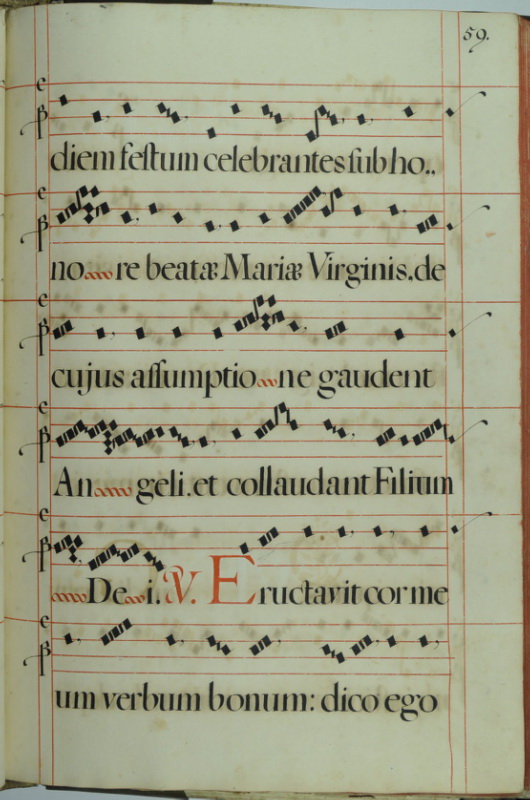 59.
diem festum celebrantes sub ho..
no re beatæ Mariæ Virginis. de
cujus assumptio ne gaudent
An geli. et collaudant Filium
De i. V. Eructavit cor me
um verbum bonum: dico ego